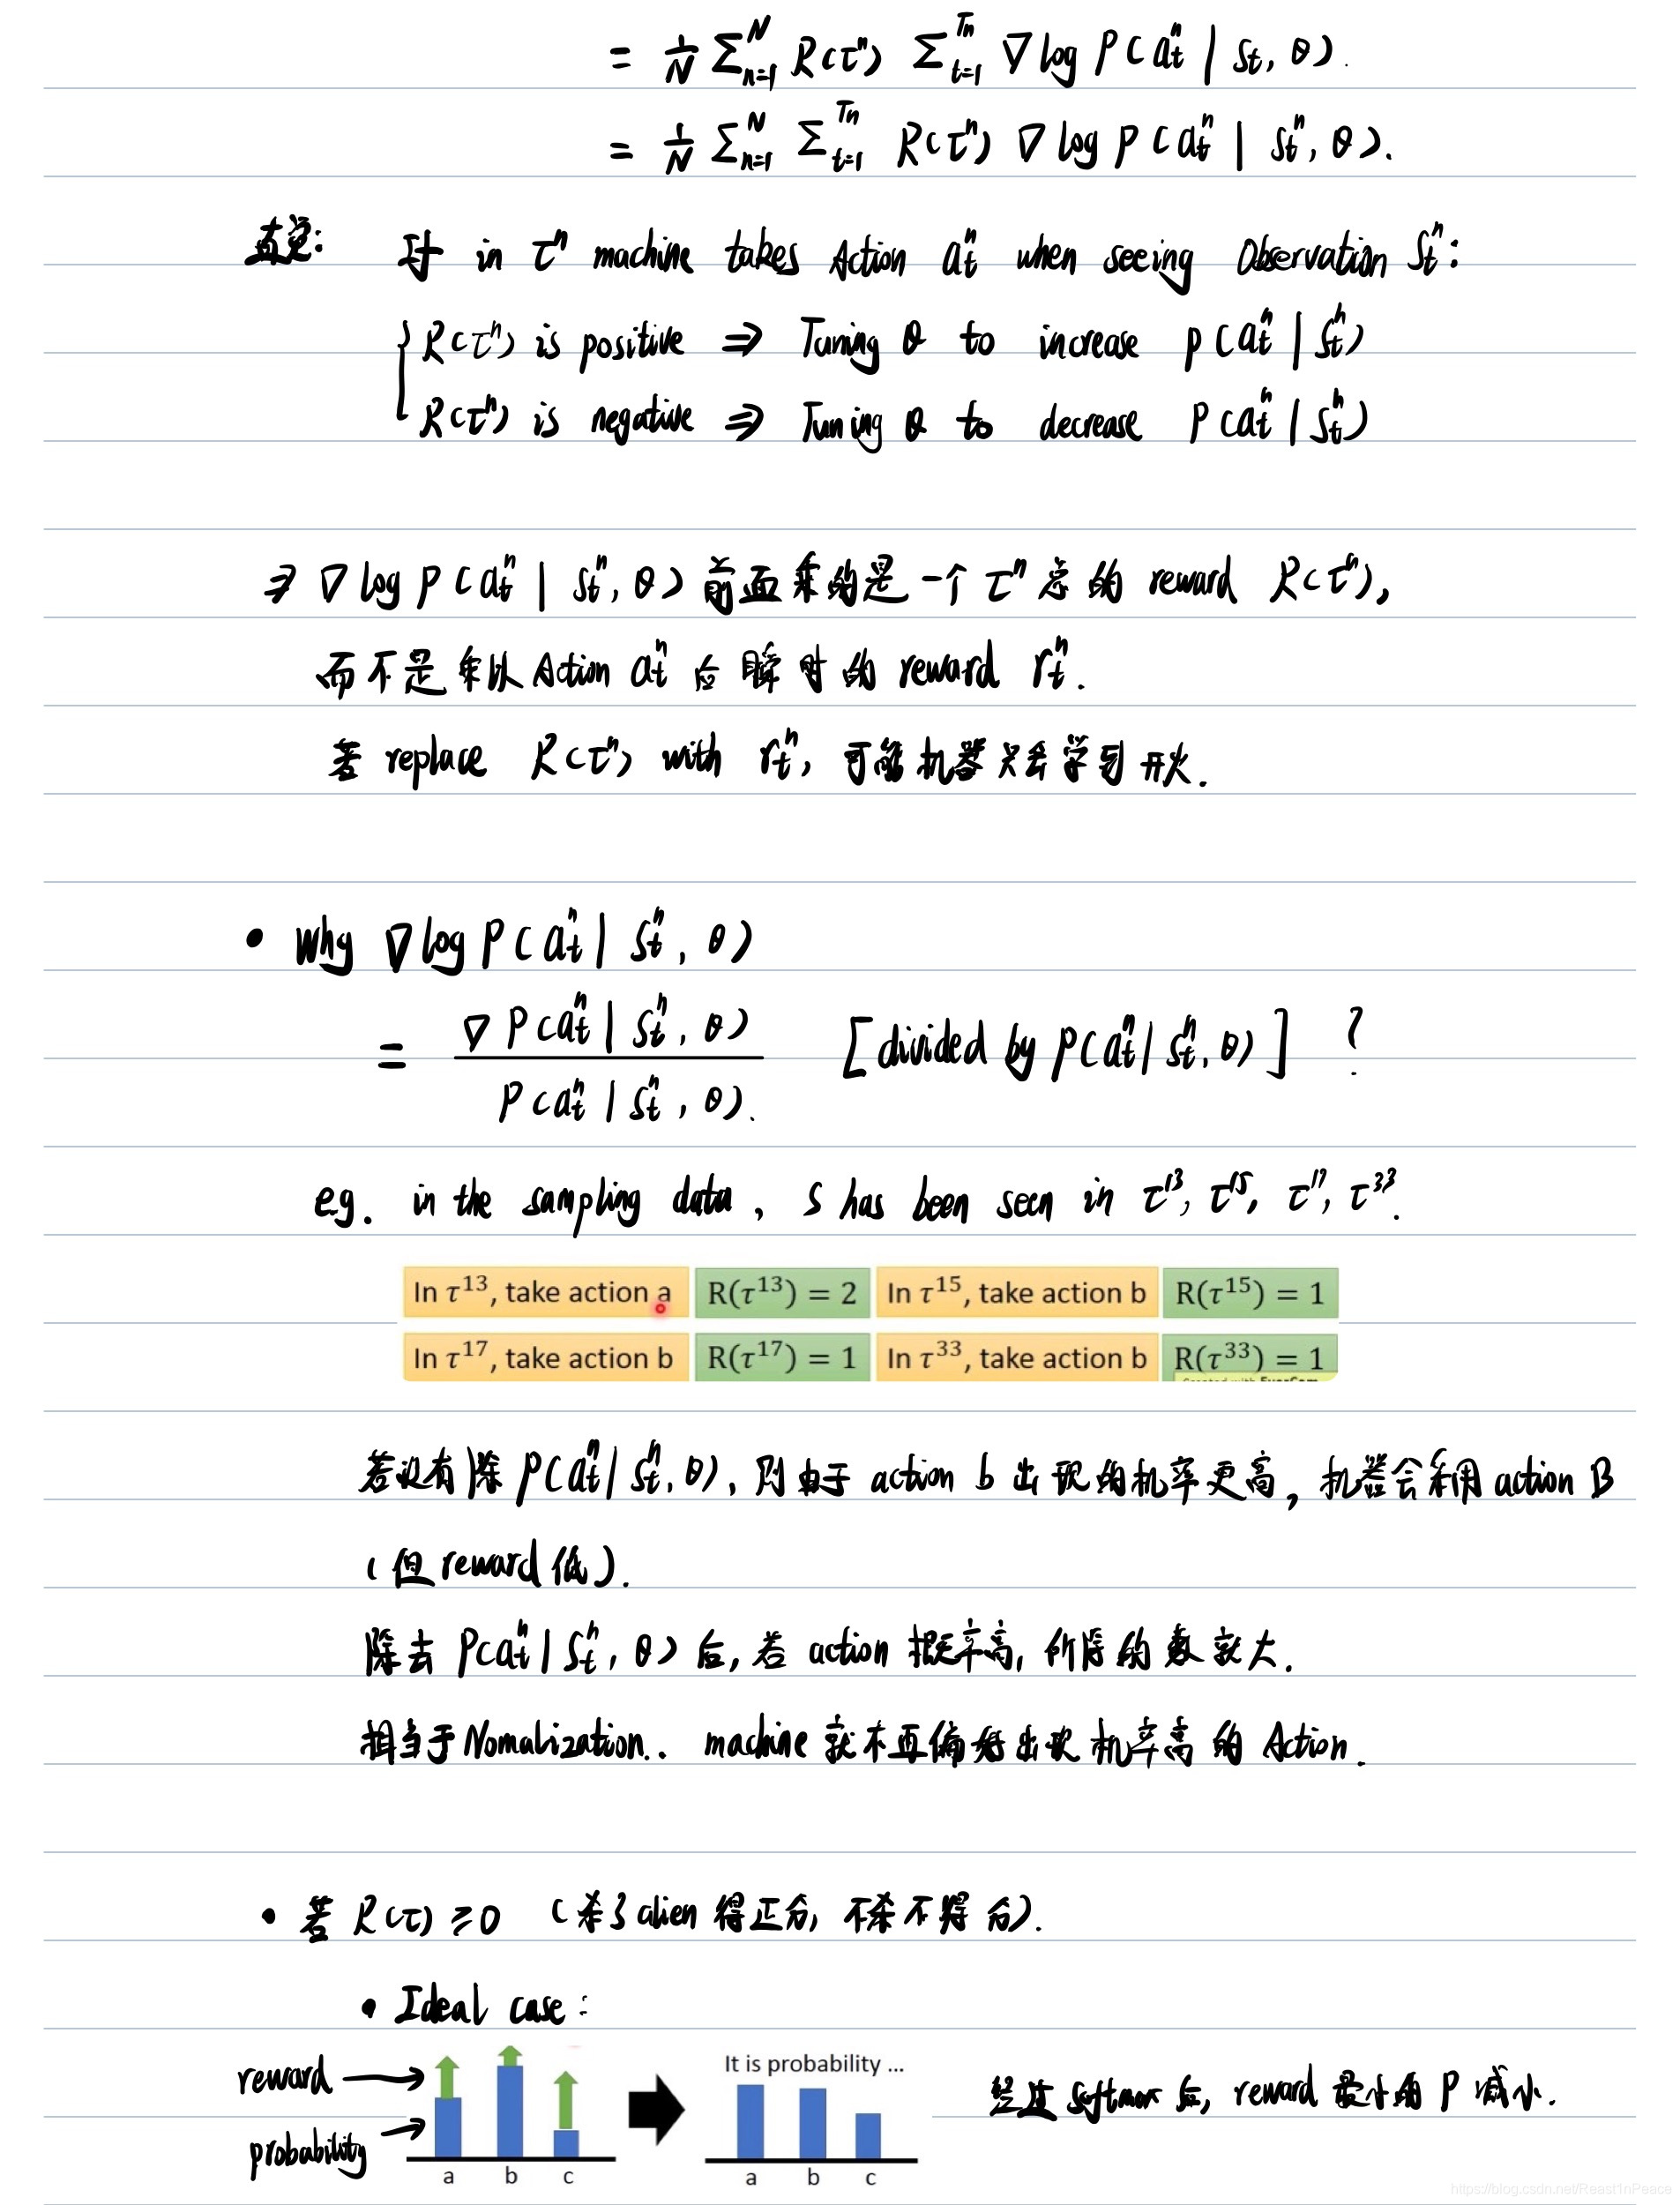 = 1/N Σ_{n=1}^{N} R(τⁿ) Σ_{t=1}^{Tn} ∇ log P(a_t^n | s_t, θ).
= 1/N Σ_{n=1}^{N} Σ_{t=1}^{Tn} R(τⁿ) ∇ log P(a_t^n | s_t^n, θ).
直觉: 对于 in τⁿ machine takes Action a_t^n when seeing Observation S_t^n:
{ R(τⁿ) is positive ⇒ Tuning θ to increase P(a_t^n | S_t^n)
R(τⁿ) is negative ⇒ Tuning θ to decrease P(a_t^n | S_t^n)
⇒ ∇ log P(a_t^n | s_t^n, θ) 前面乘的是一个 τⁿ 总的 reward R(τⁿ),
而不是乘以 Action a_t^n 后瞬时的 reward r_t^n.
若 replace R(τⁿ) with r_t^n, 可能机器只会学习开火.
• Why ∇ log P(a_t^n | s_t^n, θ)
= ∇P(a_t^n | s_t^n, θ) / P(a_t^n | s_t^n, θ). [divided by P(a_t^n | s_t^n, θ)] ?
e.g. in the sampling data, S has been seen in τ¹³, τ¹⁵, τ¹⁷, τ³³.
In τ¹³, take action a R(τ¹³) = 2 In τ¹⁵, take action b R(τ¹⁵) = 1
In τ¹⁷, take action b R(τ¹⁷) = 1 In τ³³, take action b R(τ³³) = 1
若没有除 P(a_t^n | s_t^n, θ), 则由于 action b 出现的机率更高, 机器会采用 action B
(但 reward 低).
除去 P(a_t^n | S_t^n, θ) 后, 若 action 概率高, 所除的数就大.
相当于 Nomalization.. machine 就不再偏好出现机率高的 Action.
• 若 R(τ) ≥ 0 (杀了 alien 得正分, 不杀不得分).
• Ideal case:
reward
probability
a b c
It is probability ...
a b c
经过 softmax 后, reward 最小的 P 减小.
https://blog.csdn.net/Reast1nPeace